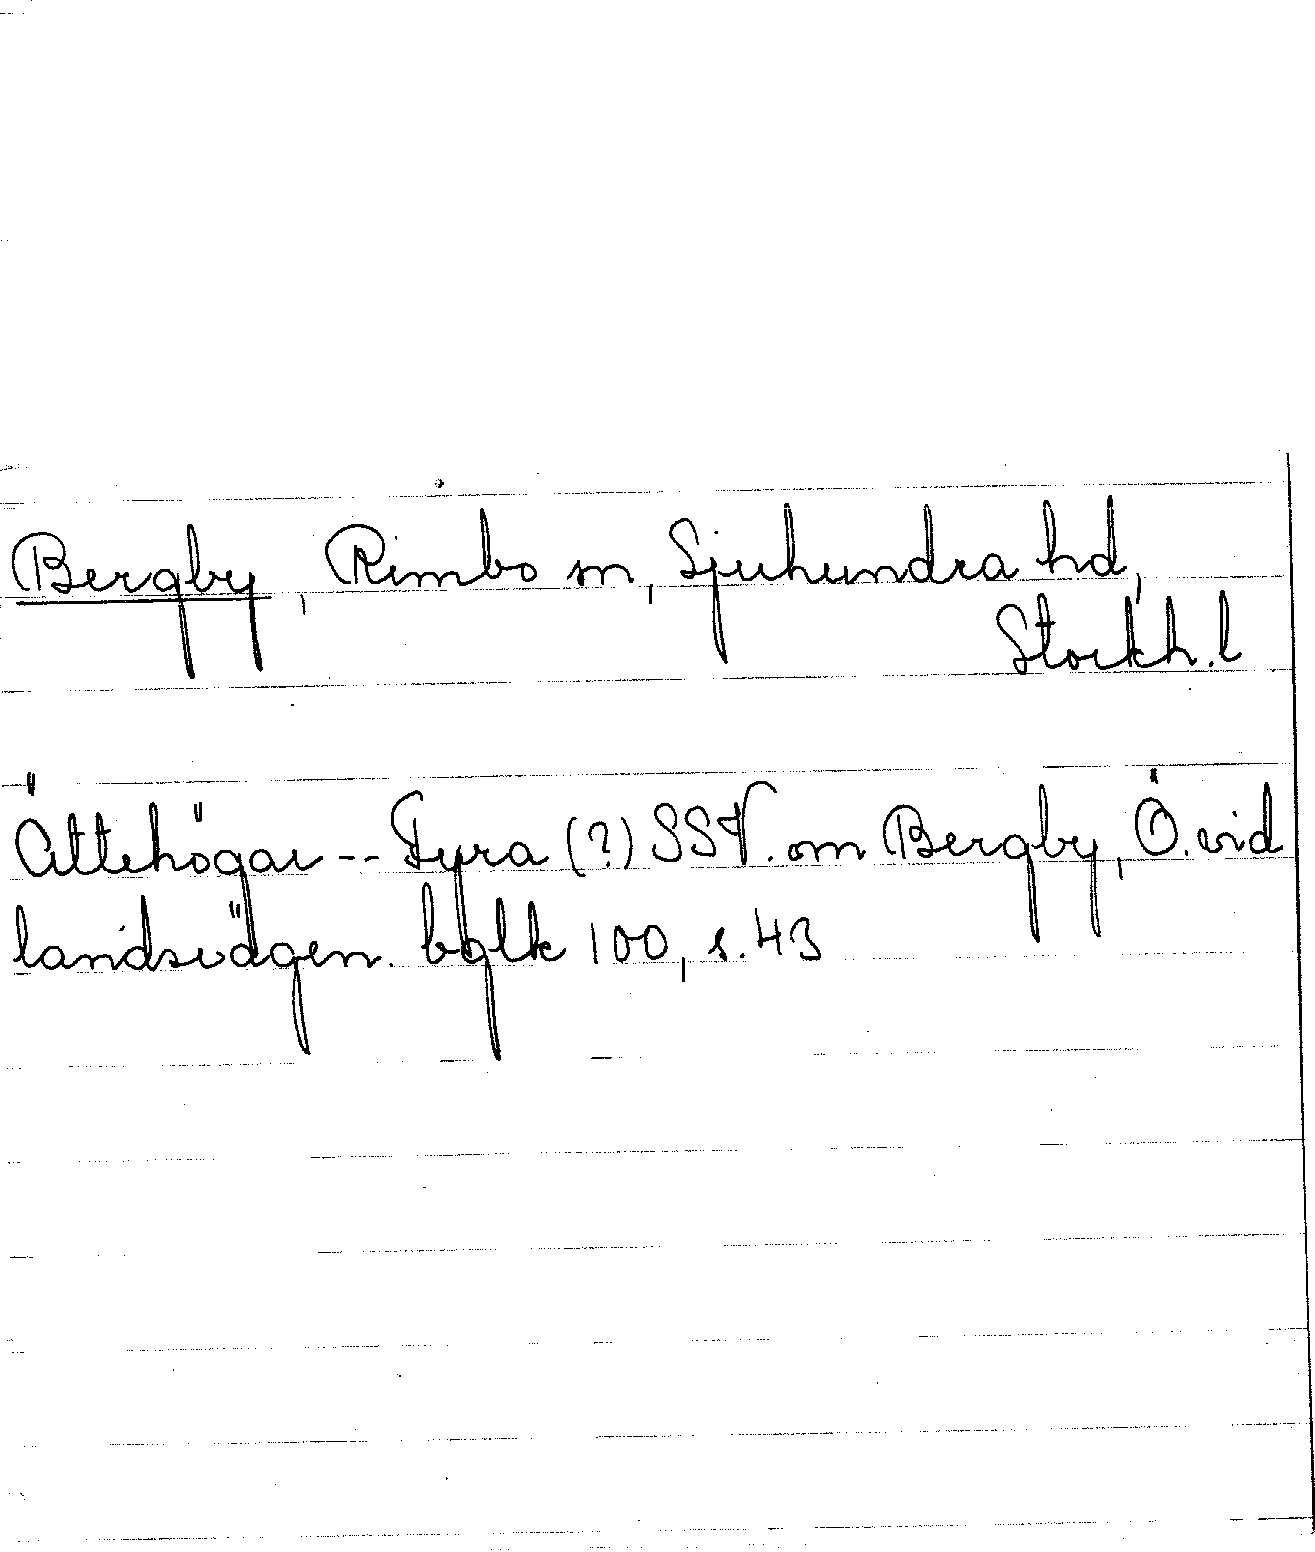 Bergby, Rimbo sn, Sjuhundra hd,
Stockh.l
Ättehögar -- Fyra (?) SSV. om Bergby, Ö. vid
landsvägen. bglk 100, s. 43